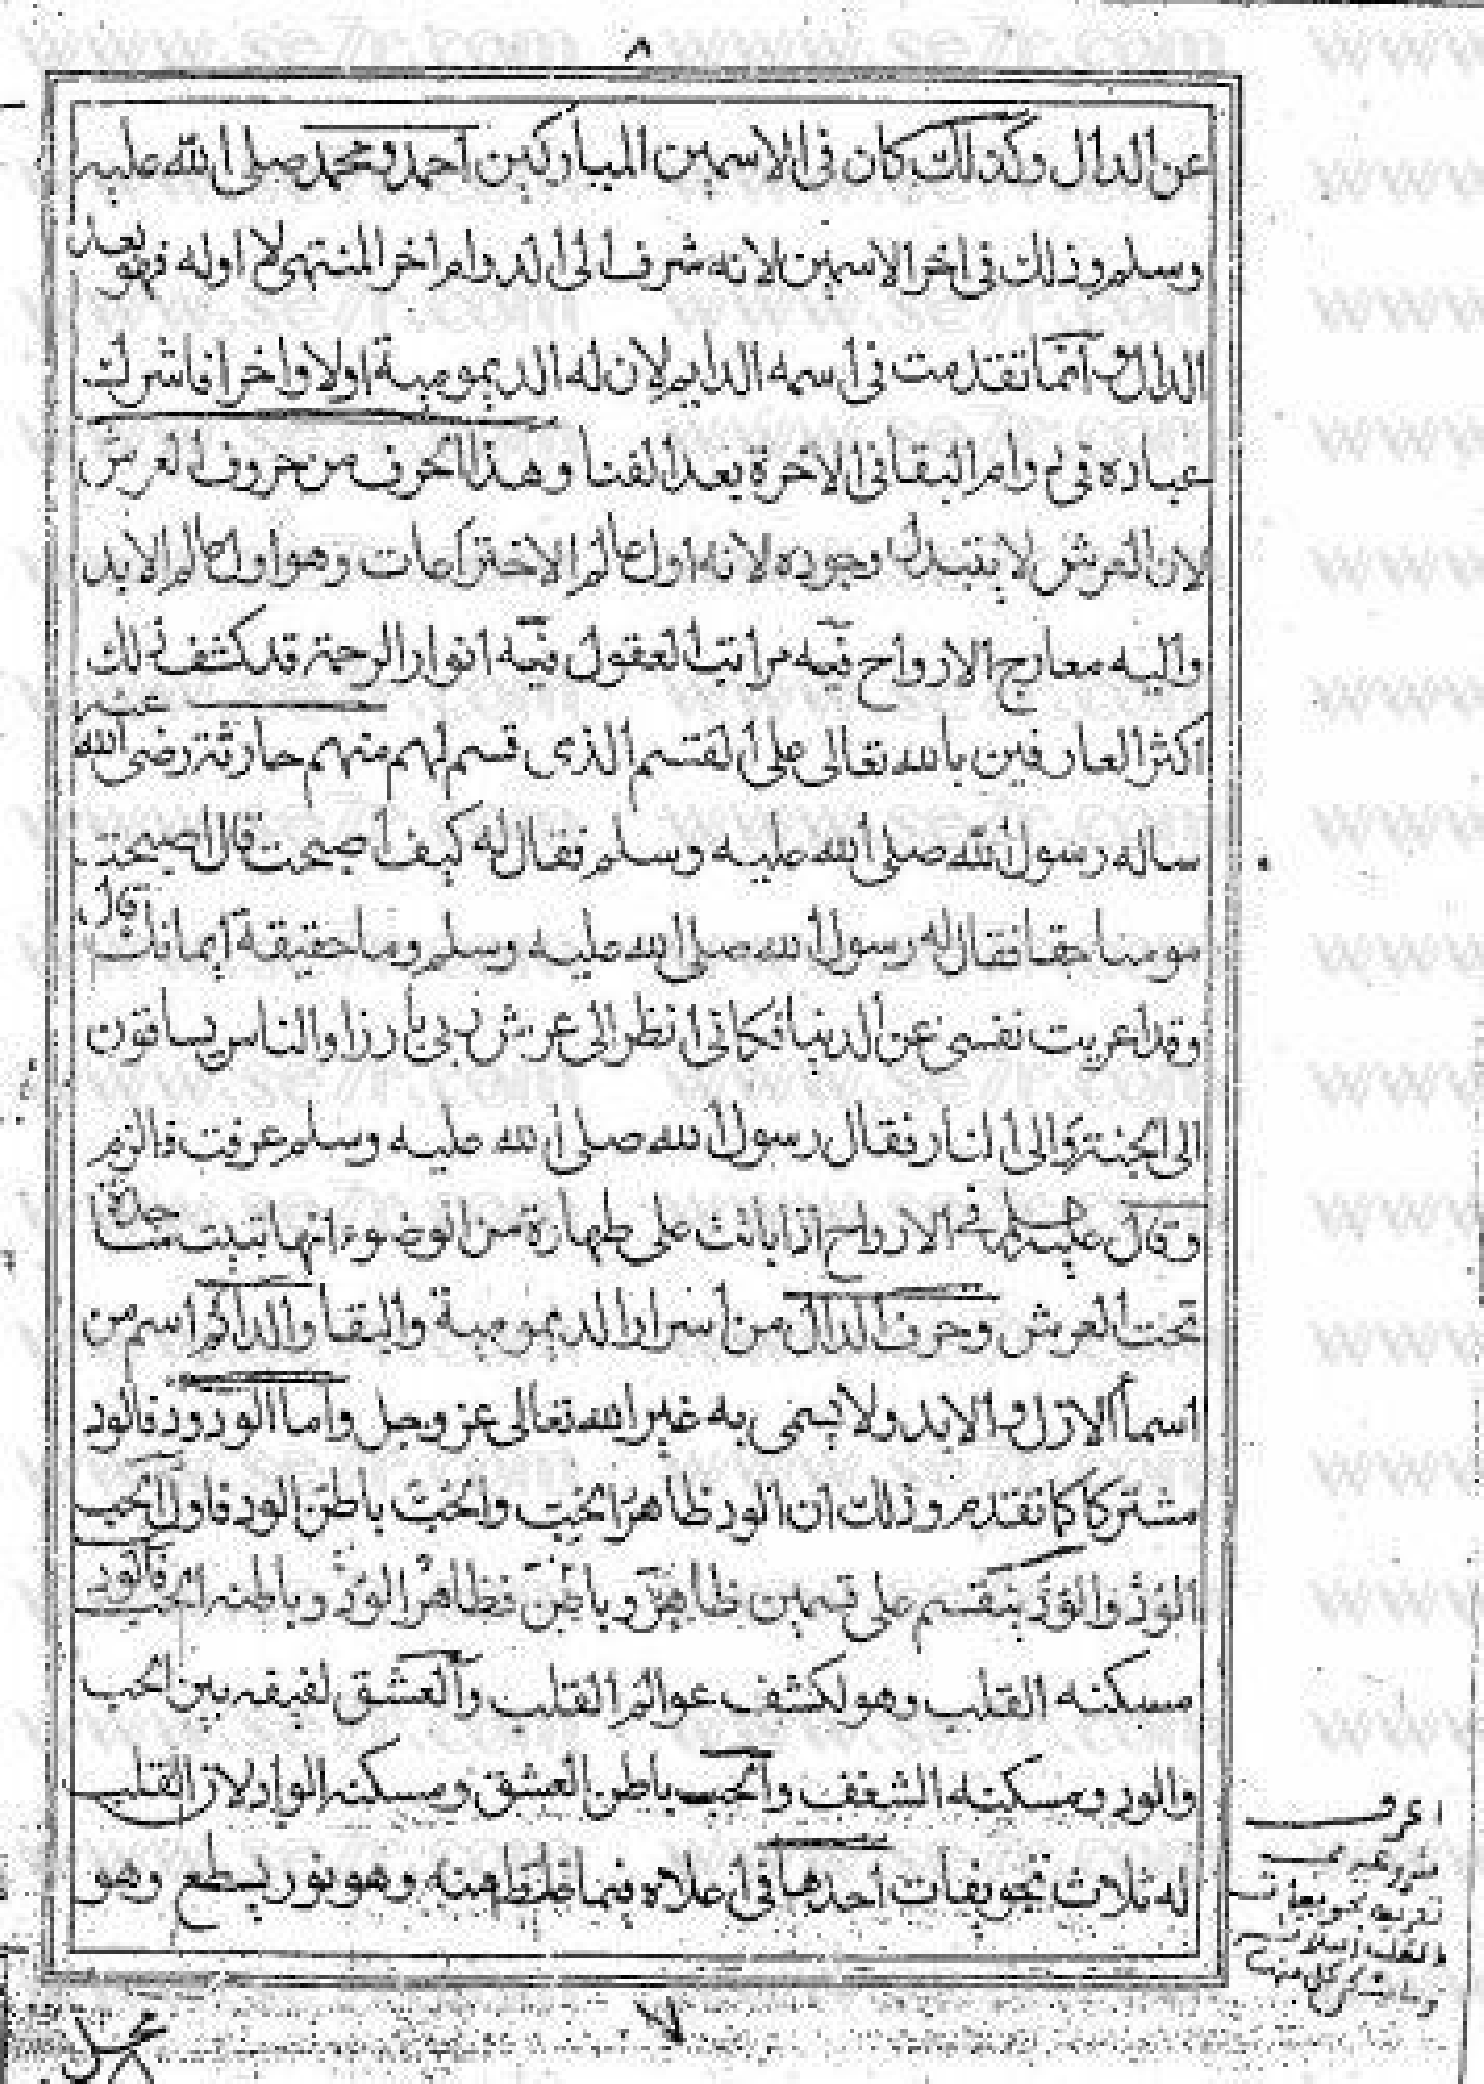 ٨
عن الدال وكذلك كان فى الاسمين المباركين احمد ومحمد صلى الله عليه
وسلم وذلك فى اخر الاسمين لانه شرف الى الدوام اخر المنتهى لا اوله فهو بعد
الدال انما تقدمت فى اسمه الدايم لان له الديمومية اولا واخرا فاشرك
عباده فى دوام البقا فى الاخرة بعد الفنا وهذا الحرف من حروف العرش
لان العرش لا يتبدل وجوده لانه اول عالم الاختراعات وهو اول عالم الابد
واليه معارج الارواح فيه مراتب العقول فيه انوار الرحمة قد كشف ذلك
اكثر العارفين بالله تعالى على القسم الذى قسم لهم منهم حارثة رضى الله عنه
ساله رسول الله صلى الله عليه وسلم فقال له كيف اصبحت قال اصبحت
مومنا حقا فقال له رسول الله صلى الله عليه وسلم وما حقيقة ايمانك قال
وقد عريت نفسى عن الدنيا فكانى انظر الى عرش ربى بارزا والناس يساقون
الى الجنة والى النار فقال رسول الله صلى الله عليه وسلم عرفت فالزم
وقال عليه فى الارواح اذا باتت على طهارة من الوضوء انها تبيت
تحت العرش وحرف الدال من اسرار الديمومية والبقا والدائم اسم من
اسما الازل والابد ولا يسمى به غير الله تعالى عز وجل واما الودود فالود
مشتركا كما تقدم وذلك ان الود ظاهر الحب والحب باطن الود فاول الحب
الود والود ينقسم على قسمين ظاهر وباطن فظاهر الود وباطنه الحب فالود
مسكنه القلب وهو لكشف عوالم القلب والعشق لفيفه بين الحب
والود ومسكنه الشغف والحب باطن العشق ومسكنه الواد لان القلب
له ثلاث تجويفات احدها فى اعلاه فيما غلظ منه وهو نور يسطع وهو
اعرف
٧
www.se7r.com